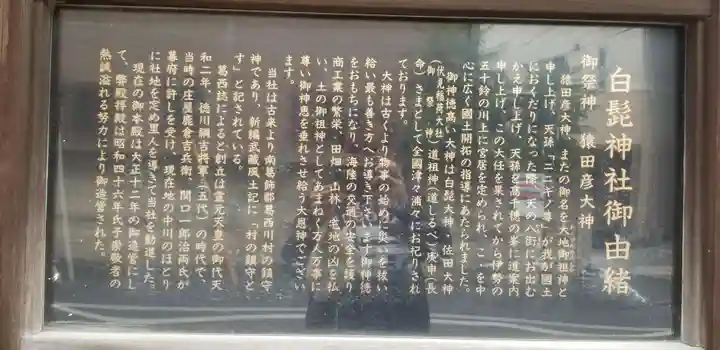 白髭神社御由緒
御祭神 猿田彦大神
猿田彦大神、またの御名を大地御祖神と
申し上げ、天孫「ニニギノ尊」が我が国土
におくだりになった際、天の八街にお出む
かえ申し上げ、天孫を高千穂の峯に道案内
申し上げ、この大任を果されてから伊勢の
五十鈴の川上に宮居を定められ、ここを中
心に広く國土開拓の指導にあたられました。
御神徳高い大神は白髭大神、佐田大神
(伏見稲荷大社)道祖神(道しるべ)庚申(長
(御祭神)
命)さまとして全國津々浦々にお祀りされ
ております。
大神は古くより物事の始めに災いを祓い、
給い最も善き方へお導き下さいます御神徳
をおもちになり、海陸の交通の安全を護り
商工業の繁栄、田畑、山林、宅地の凶を払
い、土の御祖神としてあまねく万人万事に
尊い御神恵を垂れさせ給う大恩神でござい
ます。
当社は古来より南葛飾郡葛西川村の鎮守
神であり、新編武蔵風土記に「村の鎮守と
す」と記されている。
葛西誌によると創立は霊元天皇の御代天
和二年、徳川綱吉将軍(五代)の時代で、
当時の庄屋鹿倉吉兵衛、関口一郎治両氏が
幕府に許しを受け、現在地の中川のほとり
に社地を定め里人を導きて当社を勧進した。
現在の御本殿は大正十二年の御造営にし
て、弊殿拝殿は昭和四十六年氏子崇敬者の
熱誠溢れる努力により御造営された。